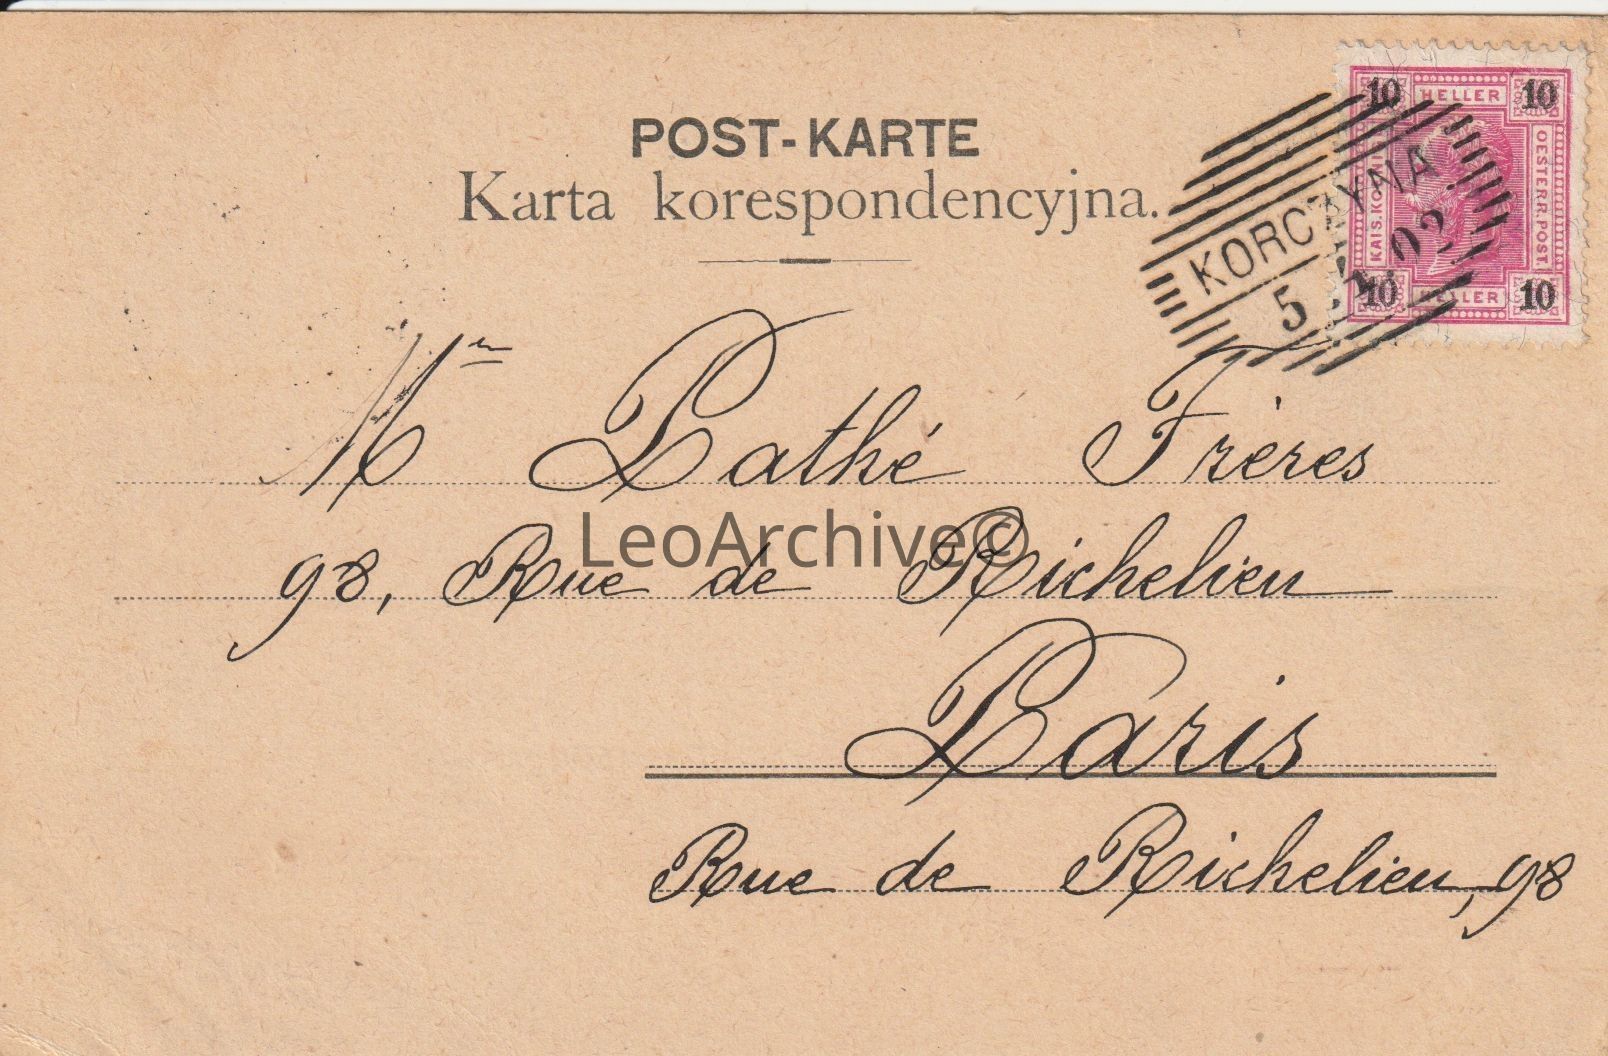 POST-KARTE
Karta korespondencyjna.
10 HELLER 10
KAIS. KÖNIGL.
OESTERR. POST.
10 HELLER 10
KORCZYNA
5 02
Mrs Pathé Frères
98, Rue de Richelieu
LeoArchive©
Paris
Rue de Richelieu, 98